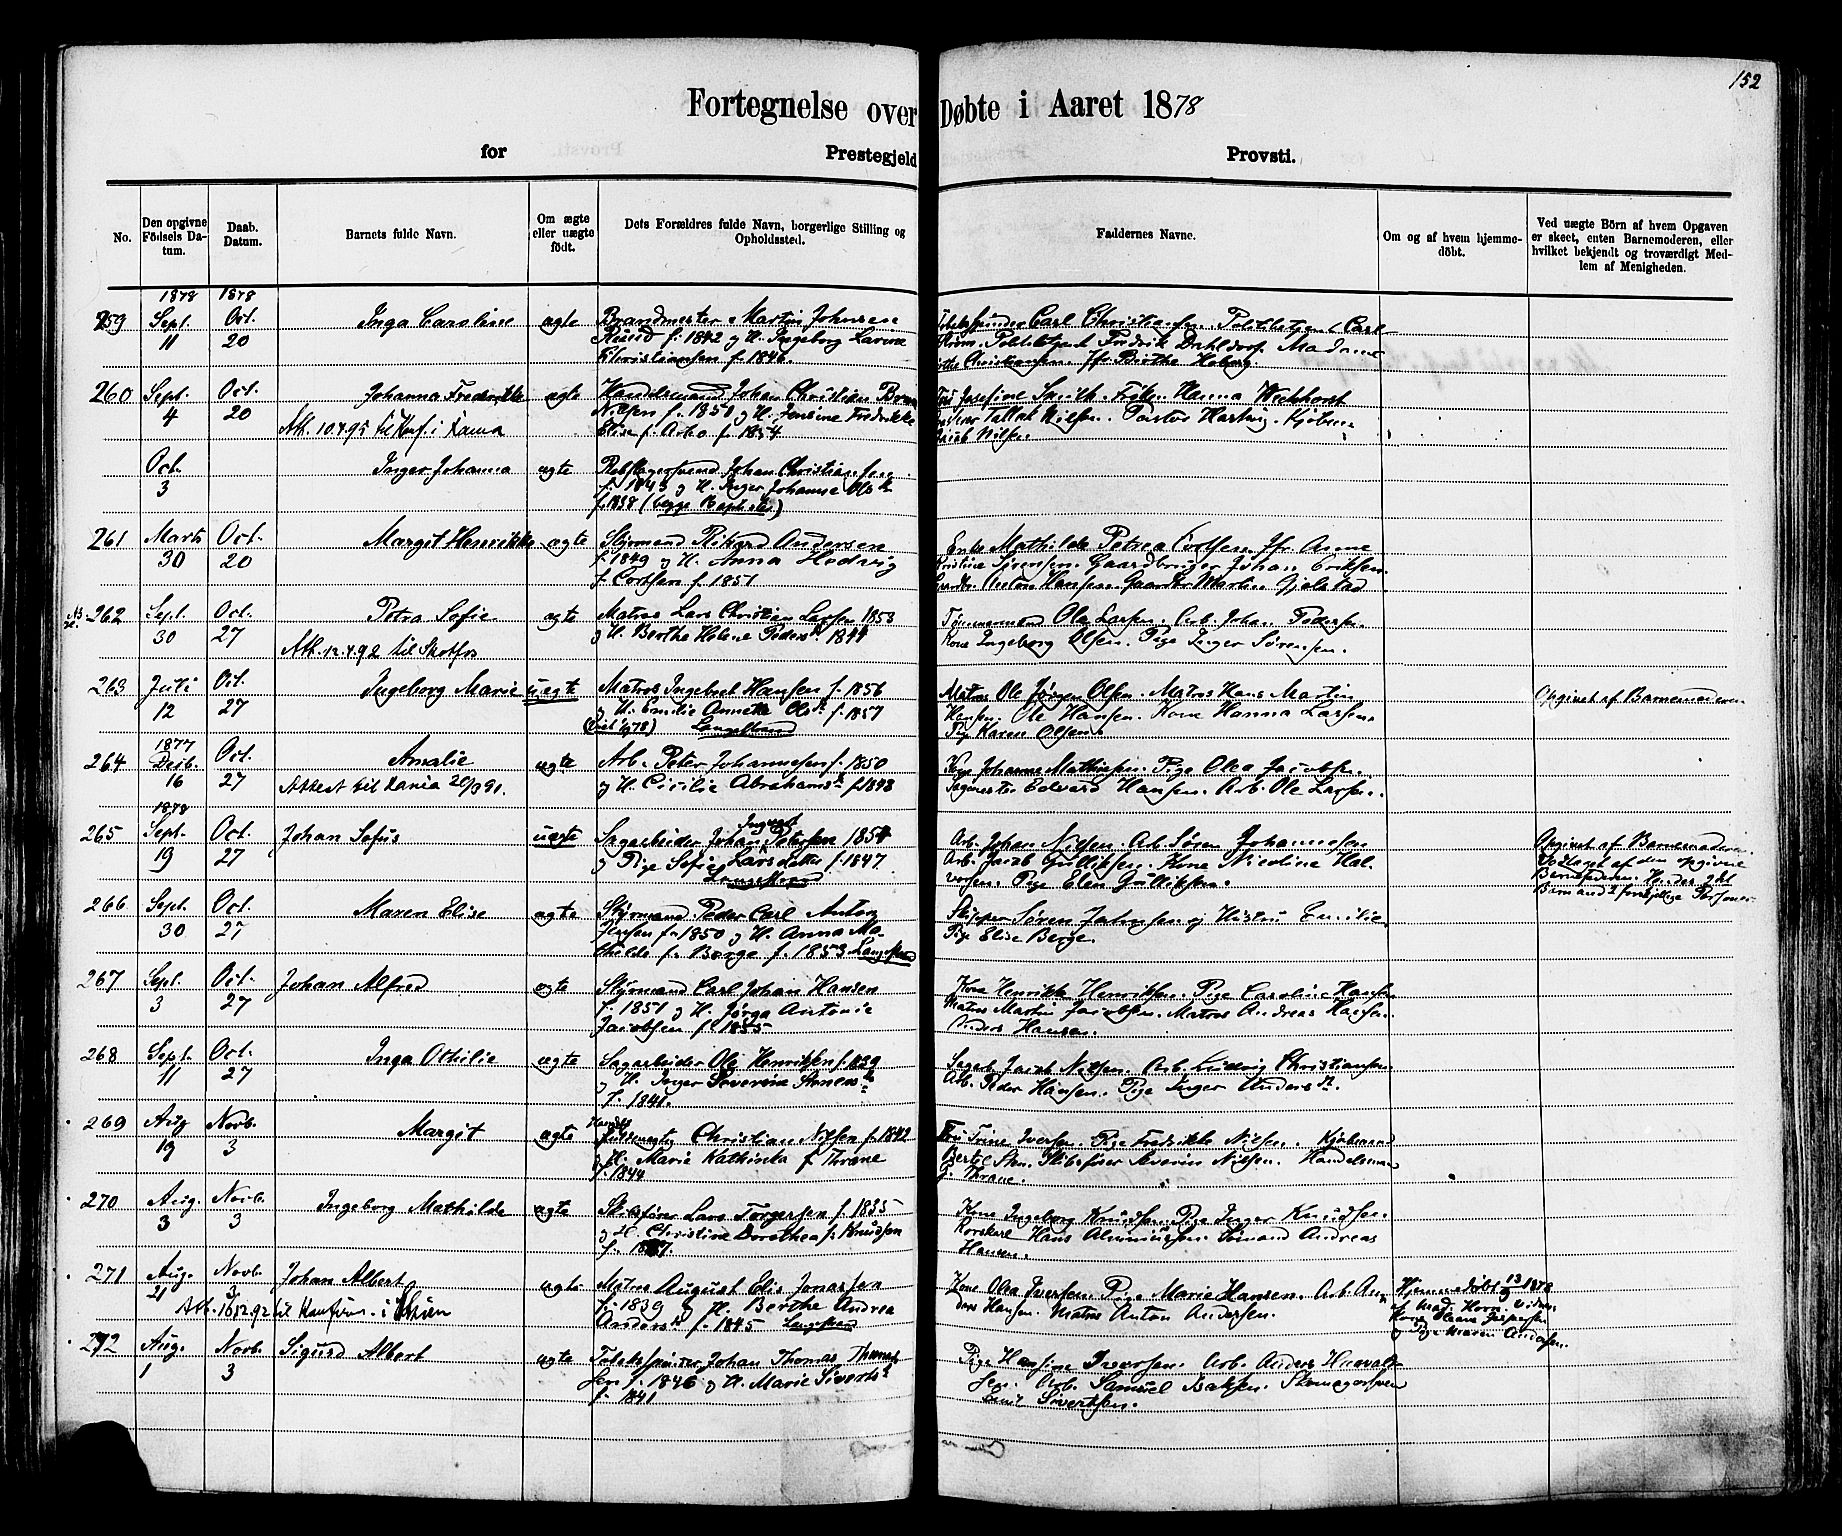 152
Fortegnelse over Døbte i Aaret 1878
for Prestegjeld Provsti.
No.
Den opgivne Födsels Datum.
Daab. Datum.
Barnets fulde Navn.
Om ægte eller uægte födt.
Dets Forældres fulde Navn, borgerlige Stilling og Opholdssted.
Faddernes Navne.
Om og af hvem hjemmedöbt.
Ved uægte Börn af hvem Opgaven er skeet, enten Barnemoderen, eller hvilket bekjendt og troværdigt Medlem af Menigheden.
1878 1878
259 Sept. 11 Oct. 20 Inga Caroline ægte Brandmester Martin Johnsen
f. 1842 og H. Ingeborg Lavine
Christiansen f. 1846.
Carl Christiansen. Politibetjent Carl
Strøm. Politibetjent Fredrik Dahldorf. Madame
Christiansen. Jfr Birthe Hoberg
260 Sept. 4 Oct. 20 Johanna Fredrikke ægte Handelsmand Johan Christian
Nilsen f. 1851 og H. Jensine Fredrikke
Elise f. Arbo f. 1854
Att. 10.4.95 til Konf. i Xania
Fru Josefine Smith. Frøken Hanna Weckhorst
Tallak Nilsen. Pastor Hartvig.
Jacob Nilsen
Oct. 3 Inger Johanna ægte Rebslagersvend Johan Christiansen
f. 1843 og H. Inger Johanne Olsdr
f. 1838 (begge Baptister)
261 Marts 30 Oct. 20 Margit Henrikke ægte Styrmand Rikard Andersen
f. 1849 og H. Anna Hedvig
f. Cortsen f. 1851
Enke Mathilde Petrea Cortsen. Jfr Anne
Kristine Sørensen. Gaardbruger Johan Eriksen.
Anton Hansen. Gaardbr Martin Gjelstad
262 Sept. 30 Oct. 27 Petra Sofie ægte Matros Lars Christian Larsen 1853
og H. Berthe Helene Pedersdr 1844
Att. 12.4.92 til Skotfos
Tømmermand Ole Larsen. Arb. Johan Pedersen.
Kone Ingeborg Olsen. Pige Inger Sørensen.
263 Juli 12 Oct. 27 Ingeborg Marie uægte Matros Ingebret Hansen f. 1856
og H. Emilie Annette Olsdr f. 1857
Langestrand
Matros Ole Jørgen Olsen. Matros Hans Martin
Hansen. Ole Hansen. Kone Hanna Larsen.
Pige Karen Olsen.
Opgivet af Barnemoderen
1877
264 Decb. 16 Oct. 27 Amalie ægte Arb. Peter Johannesen f. 1850
og H. Cicilie Abrahamsdr f. 1848
Attest til Xania 20/9 91.
Kone Johanne Mathisen. Pige Olea Jacobsen.
Sagmester Edvard Hansen. Arb. Ole Larsen.
1878
265 Sept. 19 Oct. 27 Johan Sofus uægte Sagarbeider Johan Ingvart Petersen 1854
og Pige Sofie Larsdatter f. 1847
Langestrand
Arb. Johan Nilsen. Arb. Søren Johannesen
Arb. Jacob Gulliksen. Kone Nicoline Halvorsen. Pige Elen Gulliksen.
Opgivet af Barnemoderen.
Vedtaget af den opgivne
Barnefader. Hendes 3die
Barn med 2 forskjellige Personer
266 Sept. 30 Oct. 27 Maren Elise ægte Styrmand Peder Carl Anton
Jensen f. 1850 og H. Anna Mathilde f. Berge f. 1853 Langestrand
Skipper Søren Jahnsen og Hustru Emilie
Pige Elise Berge.
267 Sept. 3 Oct. 27 Johan Alfred ægte Styrmand Carl Johan Hansen
f. 1851 og H. Jørga Antonie
Jacobsen f. 1855
Kone Henrikke Henriksen. Pige Caroline Hansen
Matros Martin Jacobsen. Matros Andreas Hansen.
Anders Hansen.
268 Sept. 11 Oct. 27 Inga Othilie ægte Sagarbeider Ole Henriksen f. 1839
og H. Inger Severine
f. 1841.
Sagarb. Jacob Nilsen. Arb. Ludvig Christiansen
Arb. Peder Hansen. Pige Inger Andersdr.
269 Aug. 19 Novb. 3 Margit ægte Fuldmægtig Christian Nilsen f. 1842
og H. Marie Kathinka f. Thrane
f. 1844
Fru Trine Iversen. Pige Fredrikke Nilsen. Kjøbmand
Bertel Sten. Skibsfører Severin Nilsen. Handelsmand
Thrane.
270 Aug. 3 Novb. 3 Ingeborg Mathilde ægte Skibsfører Lars Torgersen f. 1835
og H. Christine Dorothea f. Knudsen
Kone Ingeborg Knudsen. Pige Inger Knudsen.
Hans Sømand Andreas
Hansen.
271 Aug. 21 Novb. 3 Johan Albert ægte Matros August Elis Jonassen
f. 1839 og H. Berthe Andrea
Andersdr f. 1845 Langestrand
Att. 16.12.92 til Konfirm. i Skien
Kone Olea Iversen. Pige Marie Hansen. Arb. Anders Hansen. Matros Anton Andersen.
Hjemmedøbt 13/9 1878
af Mad. Horn. Vidner
Kone Jespersen
og Pige Maren Andersen.
272 Aug. 1 Novb. 3 Sigurd Albert ægte Tobakspinder Johan Thomas Thomassen f. 1846 og H. Marie Sivertsdr
f. 1841
Pige Hansine Iversen. Arb. Anders
Arb. Samuel Skomagersvend
Emil Sivertsen.